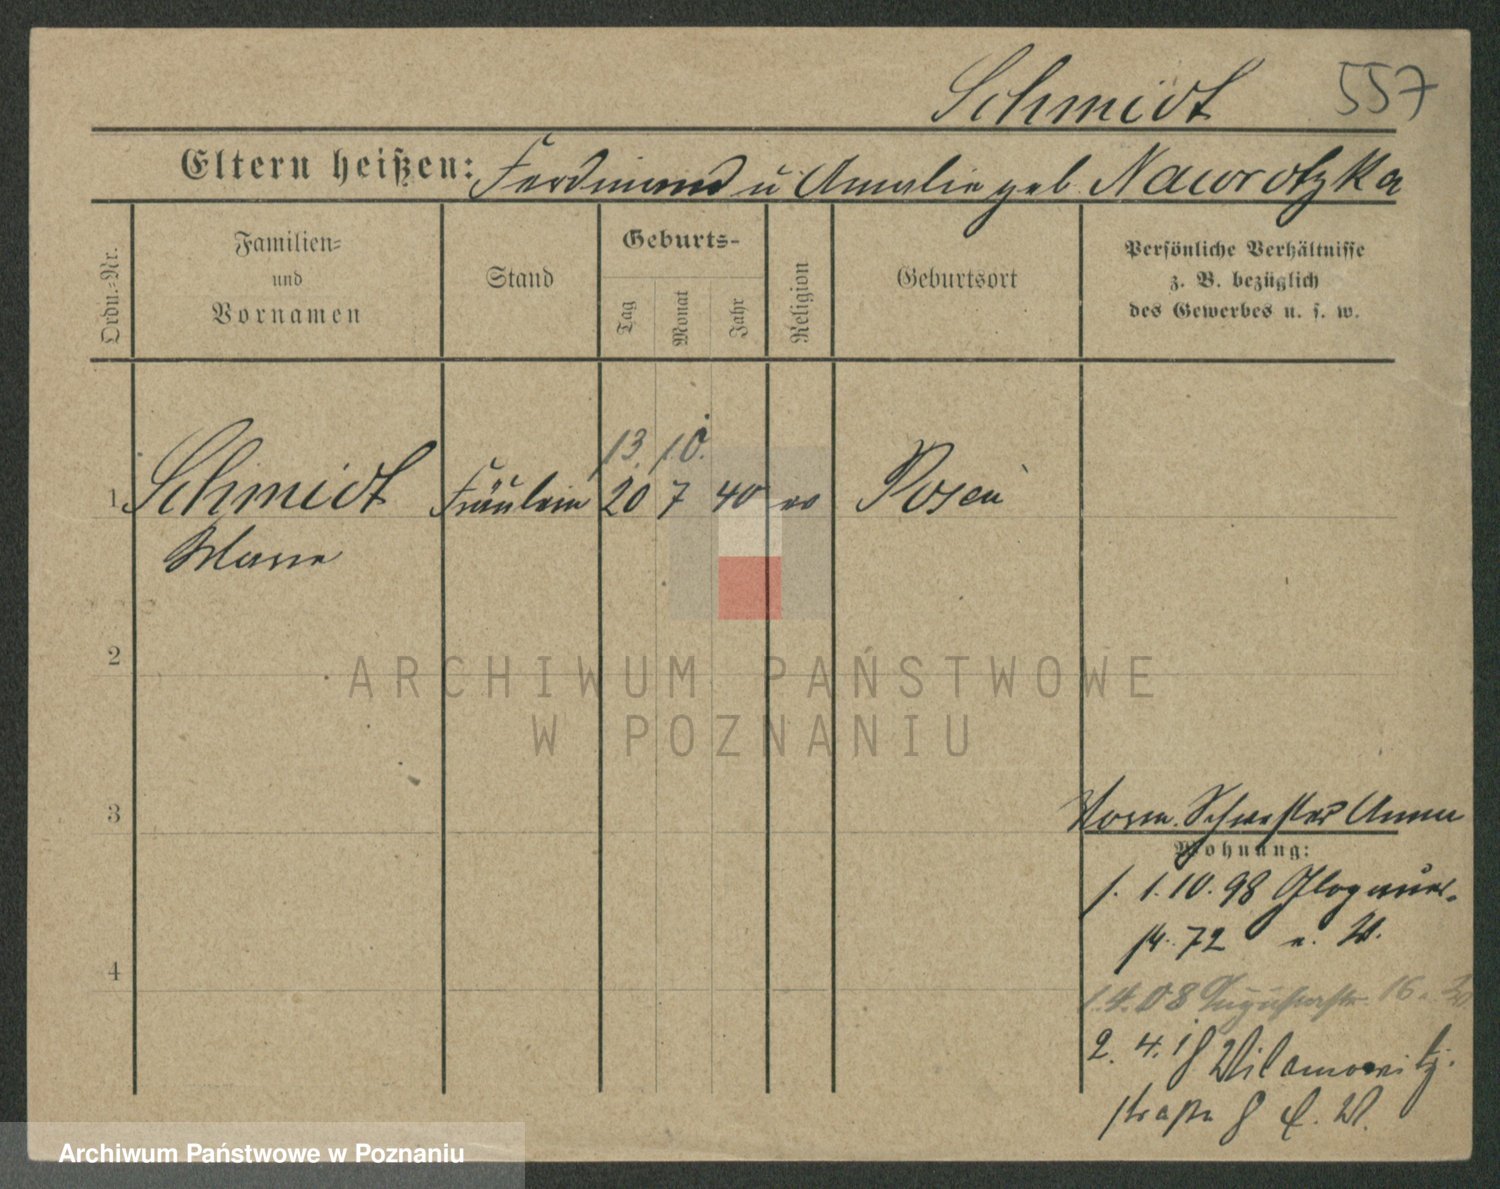 Schmidt 557
Eltern heißen: Ferdinand u Amalie geb. Nawrotzka
Ordn.-Nr.
Familien-
und
Vornamen
Stand
Geburts-
Tag
Monat
Jahr
Religion
Geburtsort
Persönliche Verhältnisse
z. B. bezüglich
des Gewerbes u. s. w.
13. 10.
1 Schmidt Fräulein 20 7 40 ev Posen
Marie
2
3
Schwester Anna
Wohnung:
1.10.98 Glogauer-
str. 72 n. W.
4
1.4.08 16
2. 4. Wilamowitz-
straße 8
ARCHIWUM PAŃSTWOWE
W POZNANIU
Archiwum Państwowe w Poznaniu